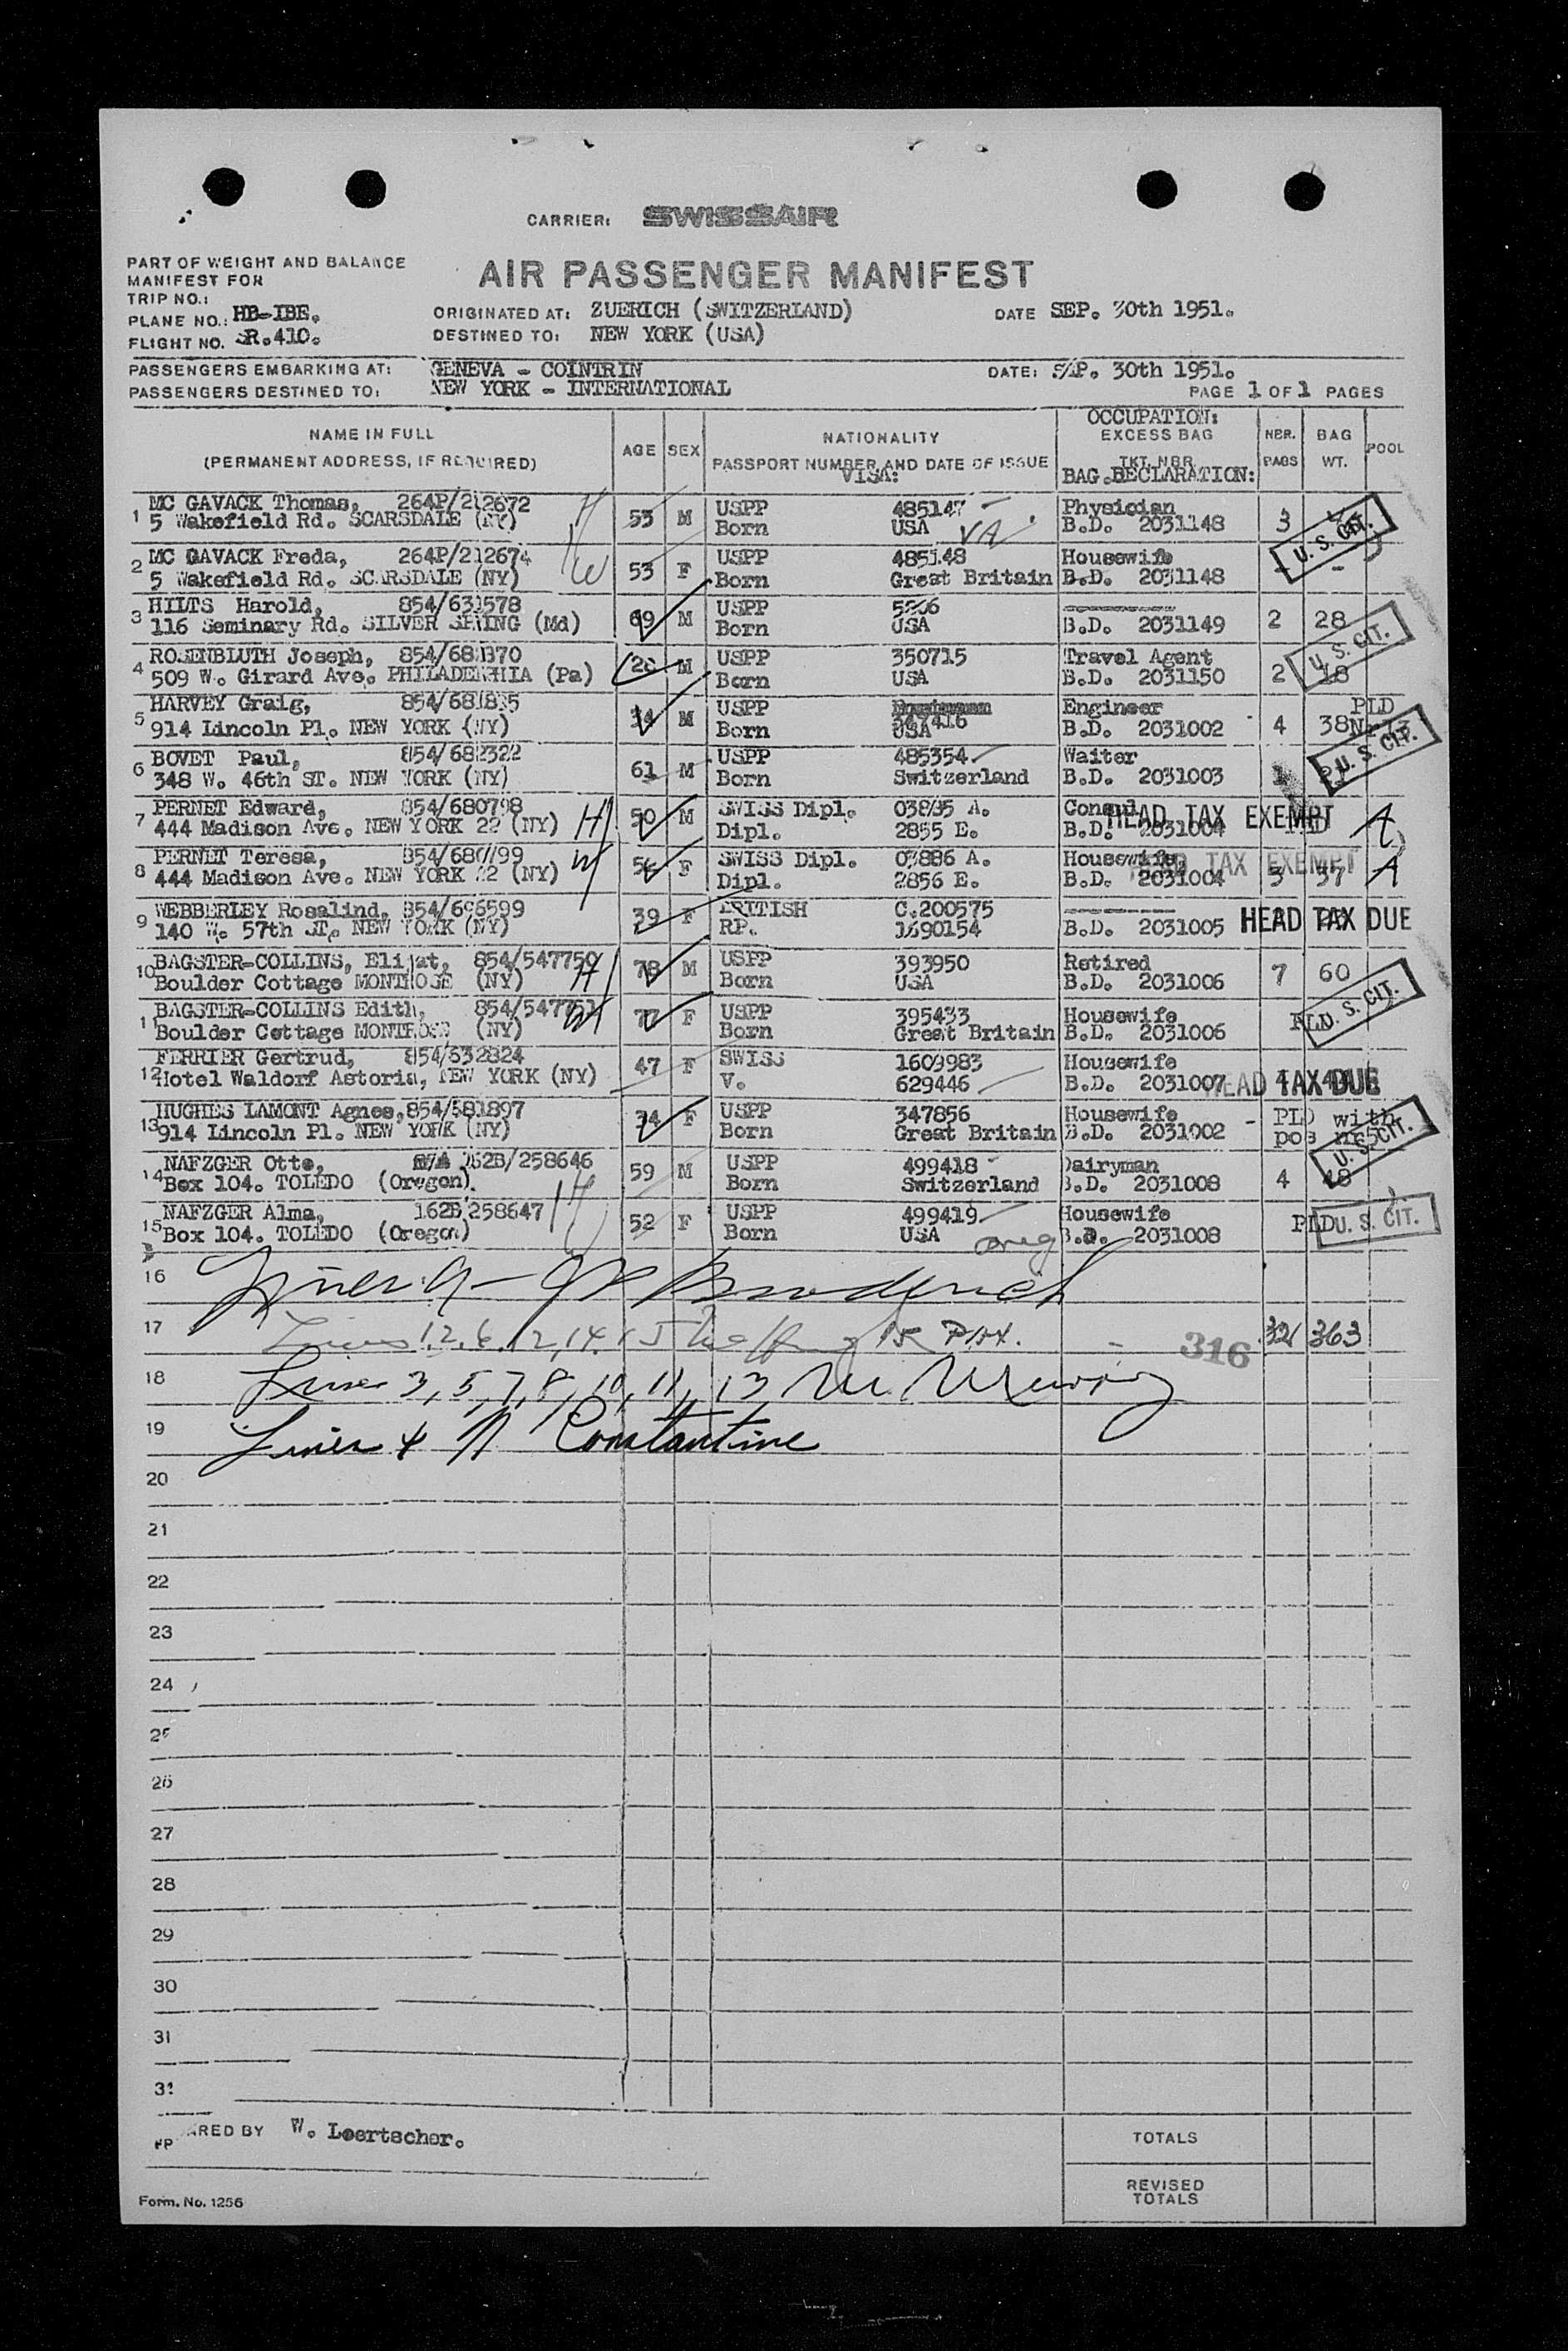 CARRIER: SWISSAIR
PART OF WEIGHT AND BALANCE
MANIFEST FOR
AIR PASSENGER MANIFEST
TRIP NO.:
PLANE NO.: HB-IBE.
FLIGHT NO. SR.410.
ORIGINATED AT: ZUERICH (SWITZERLAND) DATE SEP. 30th 1951.
DESTINED TO: NEW YORK (USA)
PASSENGERS EMBARKING AT: GENEVA - COINTRIN DATE: SEP. 30th 1951.
PASSENGERS DESTINED TO: NEW YORK - INTERNATIONAL PAGE 1 OF 1 PAGES
NAME IN FULL
(PERMANENT ADDRESS, IF REQUIRED)
AGE SEX
NATIONALITY
PASSPORT NUMBER AND DATE OF ISSUE
VISA:
OCCUPATION:
EXCESS BAG
TKT NBR
BAG.DECLARATION:
NBR. BAGS
BAG WT.
POOL
1 MC GAVACK Thomas, 264P/212672 53 M USPP 485147 Physician
5 Wakefield Rd. SCARSDALE (NY) Born USA B.D. 2031148 3 U. S. CIT.
2 MC GAVACK Freda, 264P/212674 W 53 F USPP 485148 Housewife
5 Wakefield Rd. SCARSDALE (NY) Born Great Britain B.D. 2031148 - -
3 HILTS Harold, 854/631578 69 M USPP
116 Seminary Rd. SILVER SPRING (Md) Born USA B.D. 2031149 2 28
4 ROSENBLUTH Joseph, 854/681370 M USPP 350715 Travel Agent U. S. CIT.
509 W. Girard Ave. PHILADELPHIA (Pa) Born USA B.D. 2031150 2 18
5 HARVEY Graig, 854/681835 34 M USPP 347416 Engineer PLD
914 Lincoln Pl. NEW YORK (NY) Born USA B.D 2031002 4 38
6 BOVET Paul, 854/682322 61 M USPP 485354 Waiter U. S. CIT.
348 W. 46th ST. NEW YORK (NY) Born Switzerland B.D. 2031003
7 PERNET Edward, 854/680798 H 50 M SWISS Dipl. 03885 A. Consul HEAD TAX EXEMPT A
444 Madison Ave. NEW YORK 22 (NY) Dipl. 2855 E. B.D. 2031004
8 PERNET Teresa, 854/680799 W F SWISS Dipl. 03886 A. Housewife, HEAD TAX EXEMPT A
444 Madison Ave. NEW YORK 22 (NY) Dipl. 2856 E. B.D. 2031004 3 37
9 WEBBERLEY Rosalind, 854/696599 39 F BRITISH C.200575
140 W. 57th ST. NEW YORK (NY) RP. 1690154 B.D. 2031005 HEAD TAX DUE
10 BAGSTER-COLLINS, Elijat, 854/547750 H 78 M USPP 393950 Retired
Boulder Cottage MONTROSE (NY) Born USA B.D. 2031006 7 60
11 BAGSTER-COLLINS Edith, 854/547751 W 77 F USPP 395433 Housewife PLD U. S. CIT.
Boulder Cottage MONTROSE (NY) Born Great Britain B.D. 2031006
12 FERRIER Gertrud, 854/632824 47 F SWISS 1609983 Housewife
Hotel Waldorf Astoria, NEW YORK (NY) V. 629446 B.D. 2031007 HEAD TAX DUE
13 HUGHES LAMONT Agnes, 854/581897 34 F USPP 347856 Housewife PLD with
914 Lincoln Pl. NEW YORK (NY) Born Great Britain B.D. 2031002 pos U. S. CIT.
14 NAFZGER Otto, 162B/258646 59 M USPP 499418 Dairyman
Box 104. TOLEDO (Oregon). Born Switzerland B.D. 2031008 4 48
15 NAFZGER Alma, 162B/258647 52 F USPP 499419 Housewife PLD U. S. CIT.
Box 104. TOLEDO (Oregon) Born USA orig B.D. 2031008
16 Lines 9 -
17 Lines 1, 2, 6, 12, 14, 15 316 32 363
18 Lines 3, 5, 7, 8, 10, 11, 13 M. Murray
19 Lines 4 N Constantine
20
21
22
23
24
25
26
27
28
29
30
31
32
PREPARED BY W. Loertscher.
TOTALS
REVISED
TOTALS
Form. No. 1256